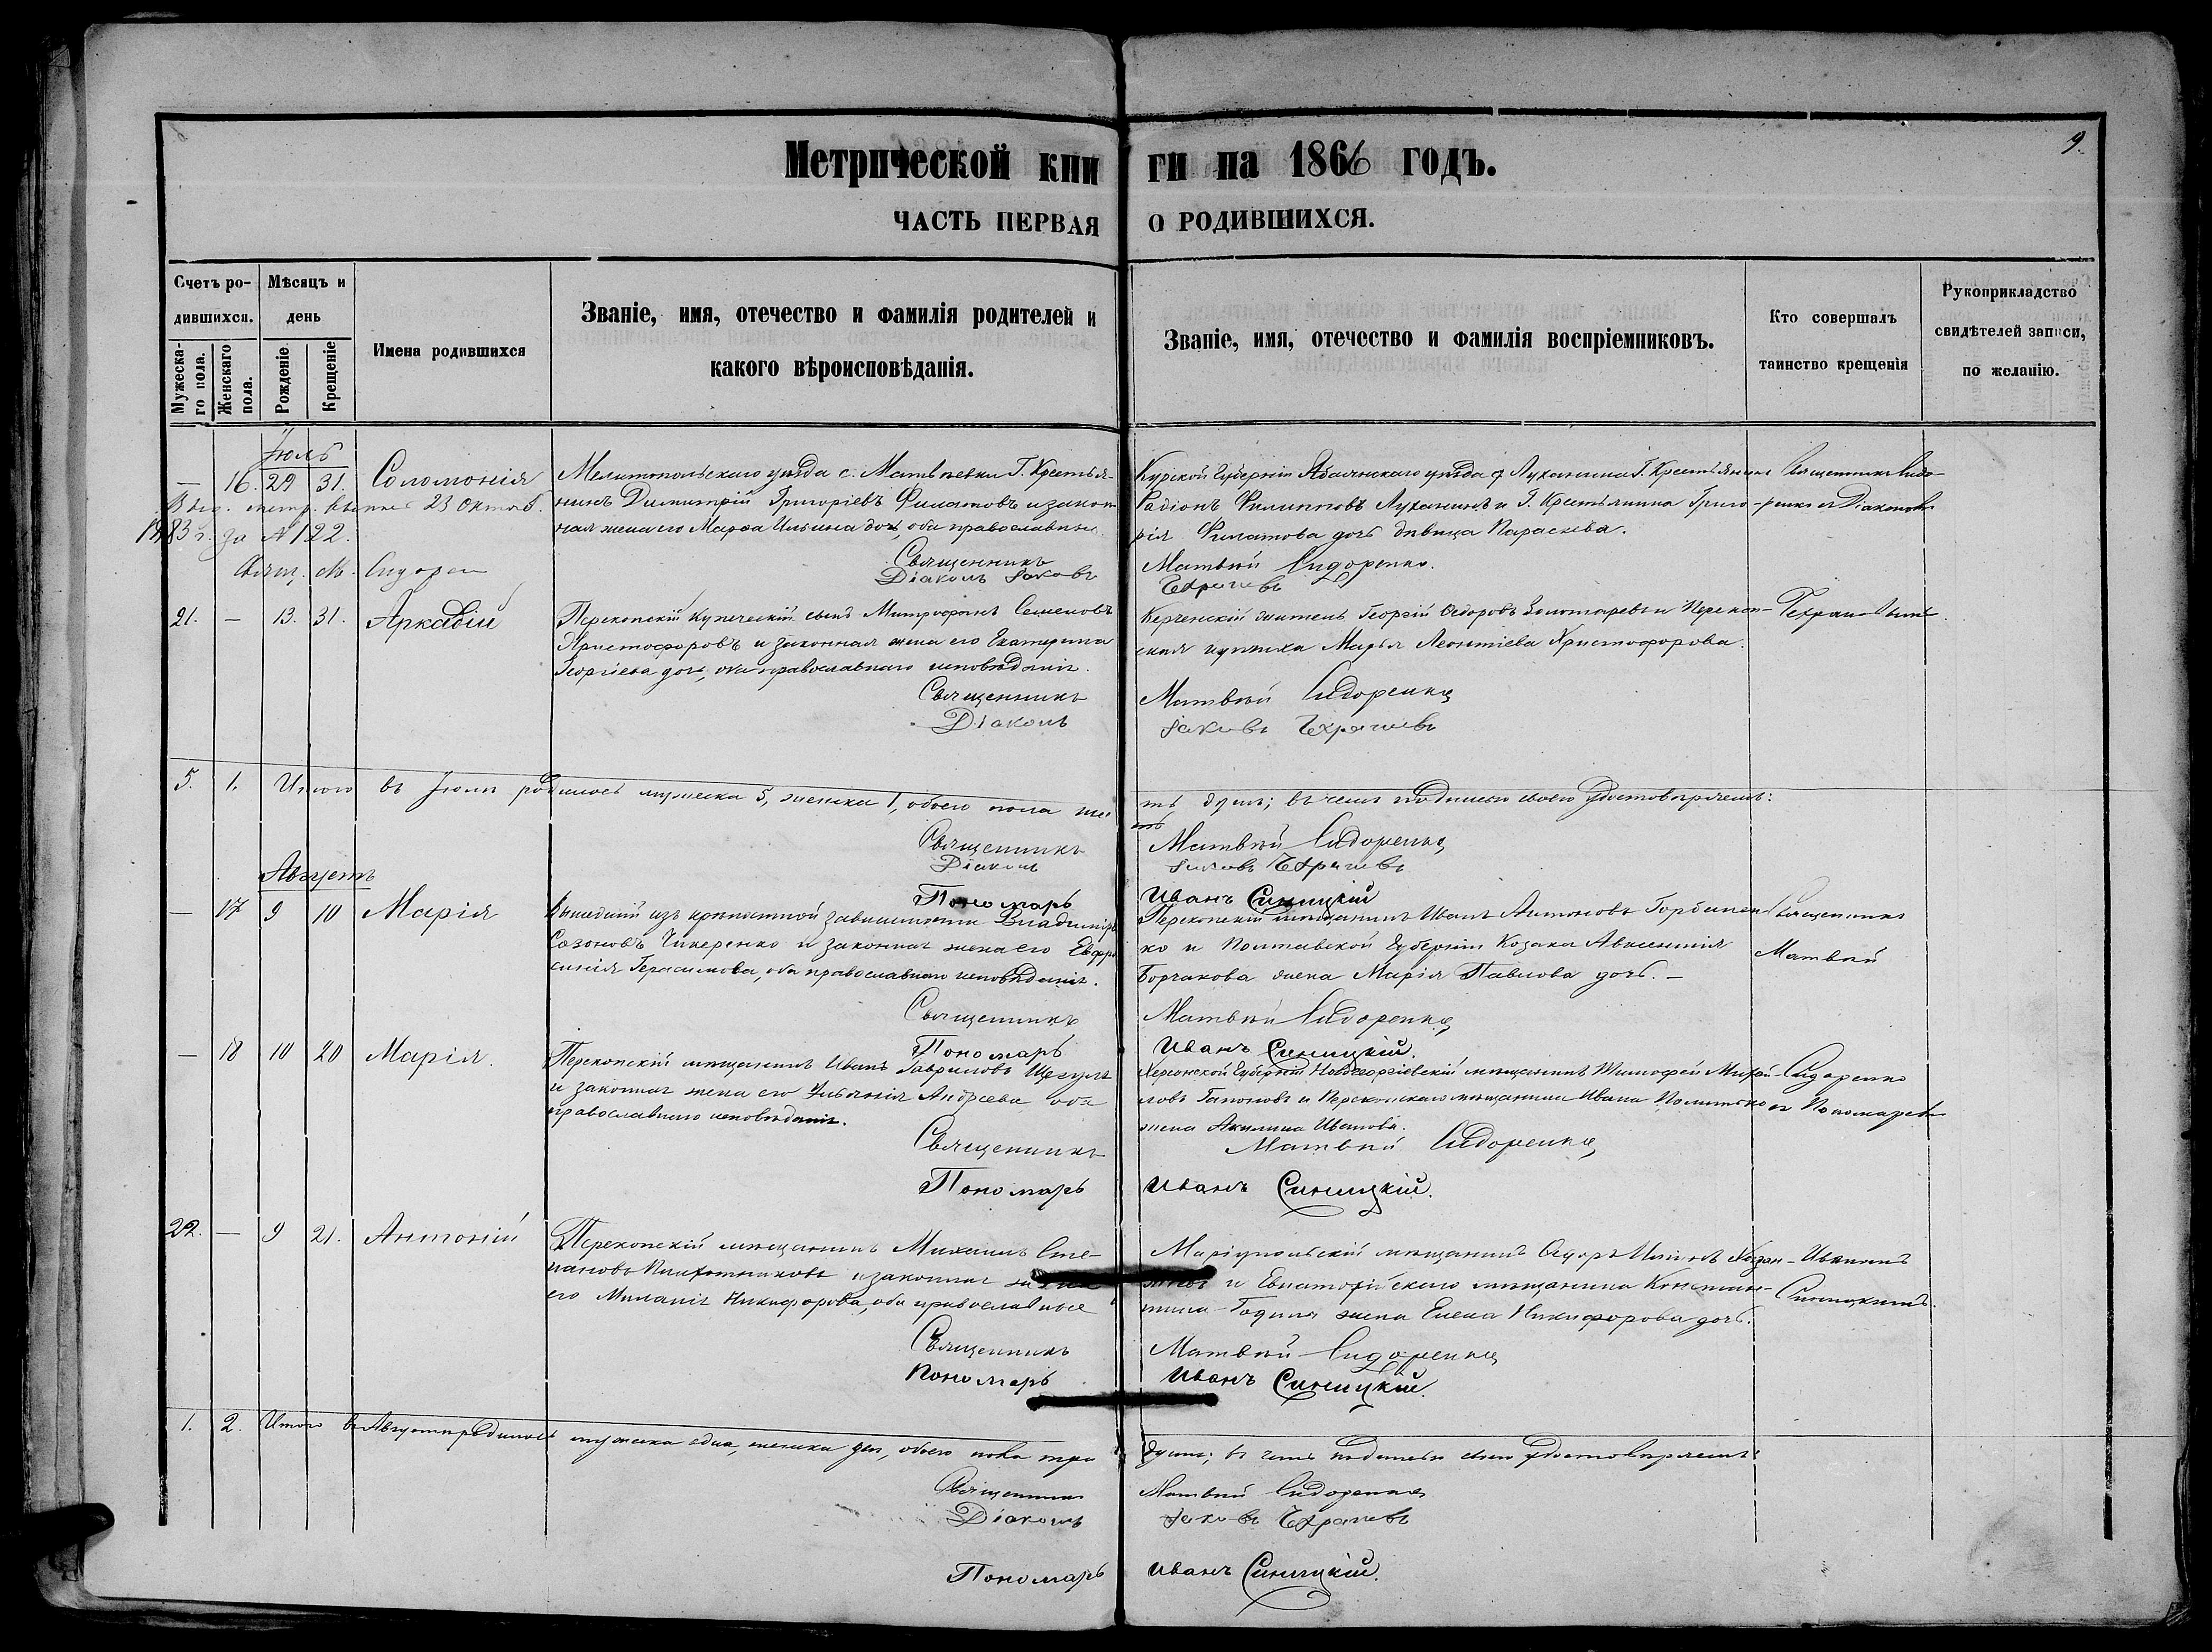 9.
Метрической кни ги на 1866 годъ.
ЧАСТЬ ПЕРВАЯ О РОДИВШИХСЯ.
Счетъ родившихся.
Мужескаго пола.
Женскаго пола.
Мѣсяцъ и день
Рожденіе.
Крещеніе
Имена родившихся
Званіе, имя, отечество и фамилія родителей и
какого вѣроисповѣданія.
Званіе, имя, отечество и фамилія воспріемниковъ.
Кто совершалъ
таинство крещенія
Рукоприкладство
свидѣтелей записи,
по желанію.
Іюль
— 16. 29 31. Соломонія
Выд. метр. выпись 23 Октяб.
1883 г. за № 122.
Свящ. М. Сидорен
Мелитопольскаго уѣзда с. Матвѣевки Г. Крестья-
нинъ Димитрій Григоріевъ Филатовъ и закон
ная жена его Марѳа Ильина доч, оба православные.
Священникъ
Діаконъ Іаковъ
Курской Губерніи уѣзда Г. Крестьянинъ
Радіонъ Филипповъ Луханинъ и Г. Крестьянина Григо-
рія Филатова дочь дѣвица Параскева.
Матвѣй Сидоренко.
Священникъ Сидо-
ренко съ Діакономъ
21. — 13. 31. Аркадій
Перекопскій Купеческій сынъ Митрофанъ Семеновъ
Христофоровъ и законная жена его Екатерина
Георгіева доч, оба православнаго исповѣданія.
Священникъ
Діаконъ
Керченскій житель Георгій Ѳедоровъ Золотаревъ и Перекоп-
ская купчиха Марья Леонтіева Христофорова.
Матвѣй Сидоренко
Іаковъ
5. 1. Итого въ Іюлѣ родилось мужеска 5, женска 1, обоего пола шес
ть душъ; въ чемъ подписью своею удостовѣряемъ:
Священникъ
Матвѣй Сидоренко
Діаконъ
Іаковъ
Пономарь
Иванъ Синицкій
Августъ
— 17 9 10 Марія
Вышедшій изъ крѣпостной зависимости Владиміръ
Сазоновъ Чикеренко и законная жена его Евфро
синія Герасимова, оба православнаго исповѣданія.
Священникъ
Пономарь
Перекопскій мѣщанинъ Иванъ Антоновъ Горбанен
ко и Полтавской Губерніи Козака Авксентія
Борчакова жена Марія Павлова дочь. —
Матвѣй Сидоренко
Иванъ Синицкій.
Священникъ
Матвѣй
— 18 10 20 Марія.
Перекопскій мѣщанинъ Иванъ Гавриловъ
и законная жена его Андреева оба
православнаго исповѣданія.
Священникъ
Пономарь
Херсонской Губерніи Новогеоргіевскій мѣщанинъ Тимофей Михай-
ловъ Гапоновъ и Перекопскаго мѣщанина Ивана
жена Акилина Иванова.
Матвѣй Сидоренко
Иванъ Синицкій.
Сидоренко
съ Пономаремъ
22. — 9 21. Антоній
Перекопскій мѣщанинъ Михаилъ Сте-
пановъ и законная жена
его Миланія Никифорова, оба православные
Священникъ
Пономарь
Маріупольскій мѣщанинъ Ѳедоръ
и Евпаторійскаго мѣщанина Констан-
тина жена Елена Никифорова дочь.
Матвѣй Сидоренко
Иванъ Синицкій.
Иваномъ
Синицкимъ.
1. 2. Итого въ Августѣ родилось мужеска одна, женска двѣ, обоего пола три
душъ; въ чемъ подписью своею удостовѣряемъ:
Священникъ
Матвѣй Сидоренко
Діаконъ
Іаковъ
Пономарь
Иванъ Синицкій.